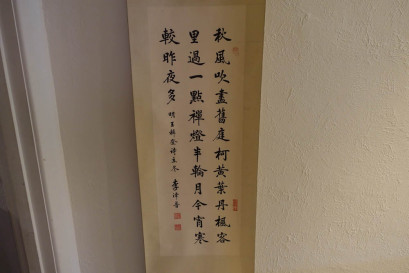 秋風吹盡舊庭柯黃葉丹楓客
里過一點禪燈半輪月今宵寒
較昨夜多
明王穉登詩立冬